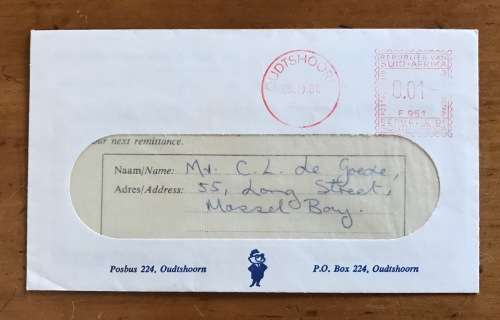 OUDTSHOORN
REPUBLIEK VAN
SUID-AFRIKA
0.01
our next remittance.
Naam/Name: Mr. C. L. de Goede,
Adres/Address: 55, Long Street,
Mossel Bay.
Posbus 224, Oudtshoorn
P.O. Box 224, Oudtshoorn